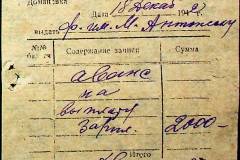 Доманевка
Дата 18 Декаб 1942
выдать ф. им. М. Антонеску
№№ Содержание записи Сумма
аванс
на
выплату
зарпл. 2000-
Итого